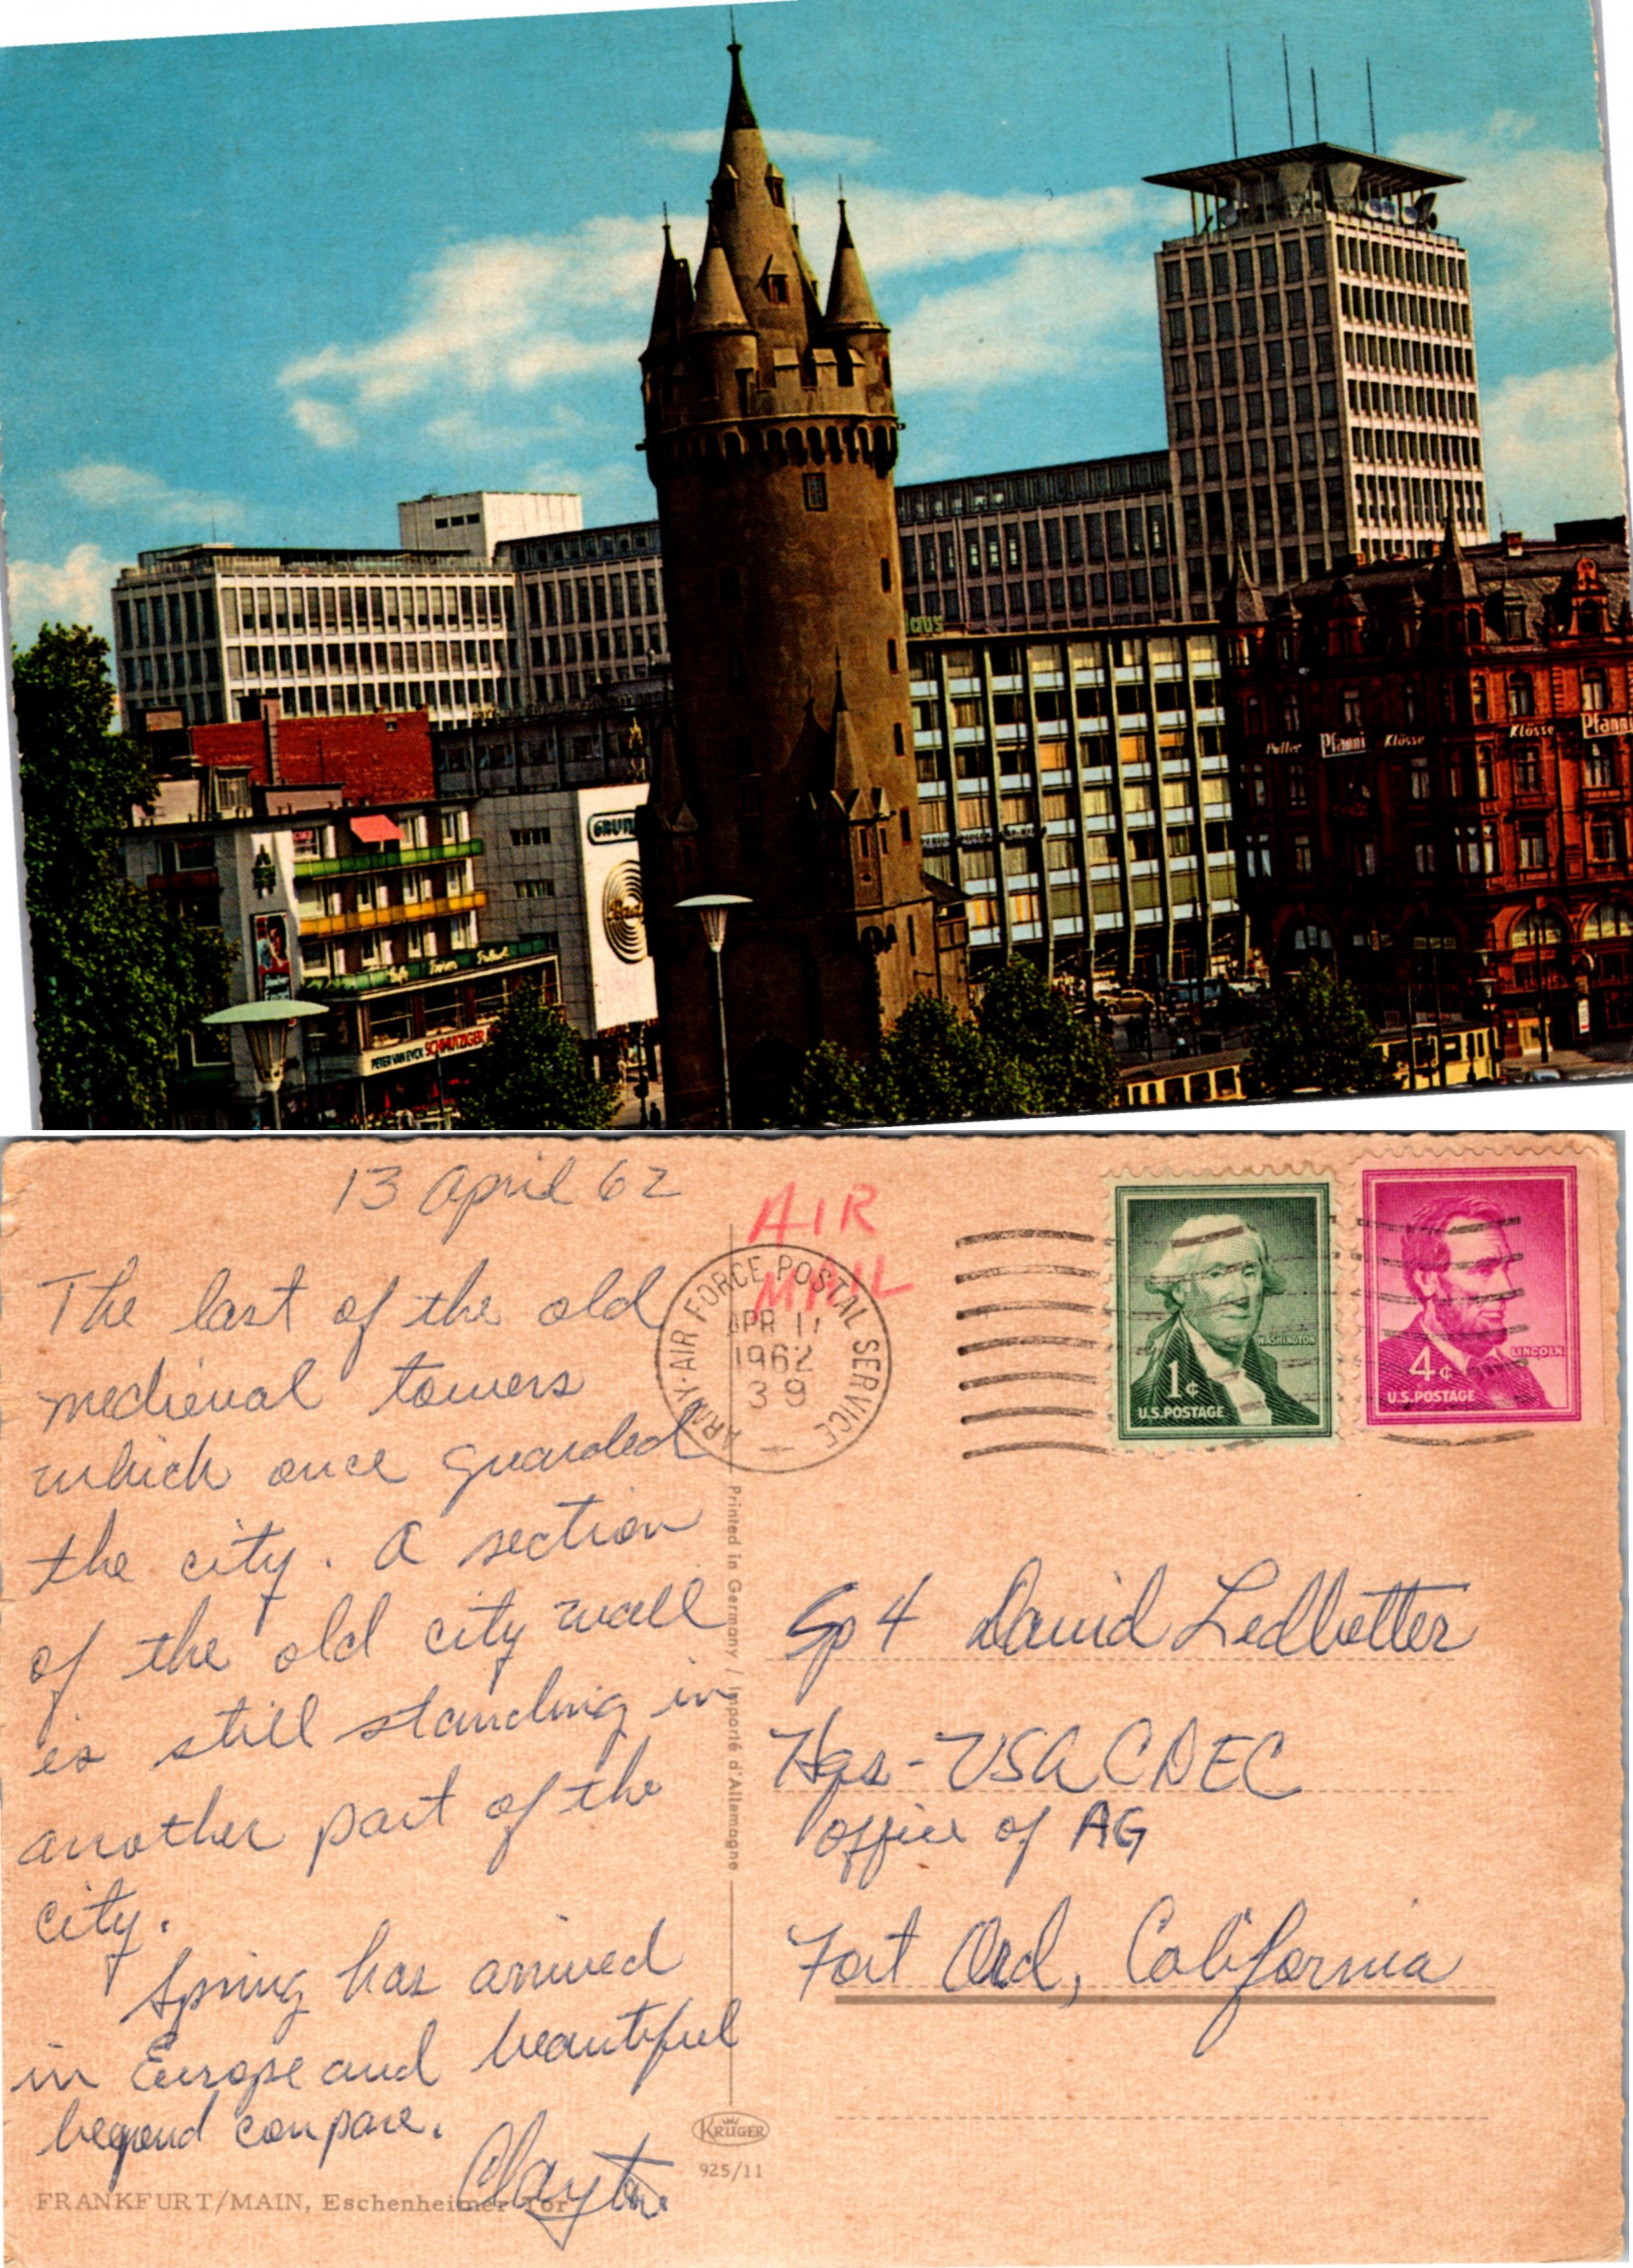 aus
Puffer Pfanni Klösse
Klösse Pfanni
GRUN
PETER VAN EYCK SCHMUTZIGER
13 April 62
AIR
MAIL
ARMY-AIR FORCE POSTAL SERVICE
APR 11
1962
39
WASHINGTON
1¢
U.S.POSTAGE
LINCOLN
4¢
U.S.POSTAGE
The last of the old
medieval towers
which once guarded
the city. A section
of the old city wall
is still standing in
another part of the
city.
Spring has arrived
in Europe and beautiful
beyond compare.
Clayton
Printed in Germany / Importé d'Allemagne
Sp 4 David Ledbetter
Hqs - USA CDEC
Office of AG
Fort Ord, California
KRÜGER
925/11
FRANKFURT/MAIN, Eschenheimer Tor